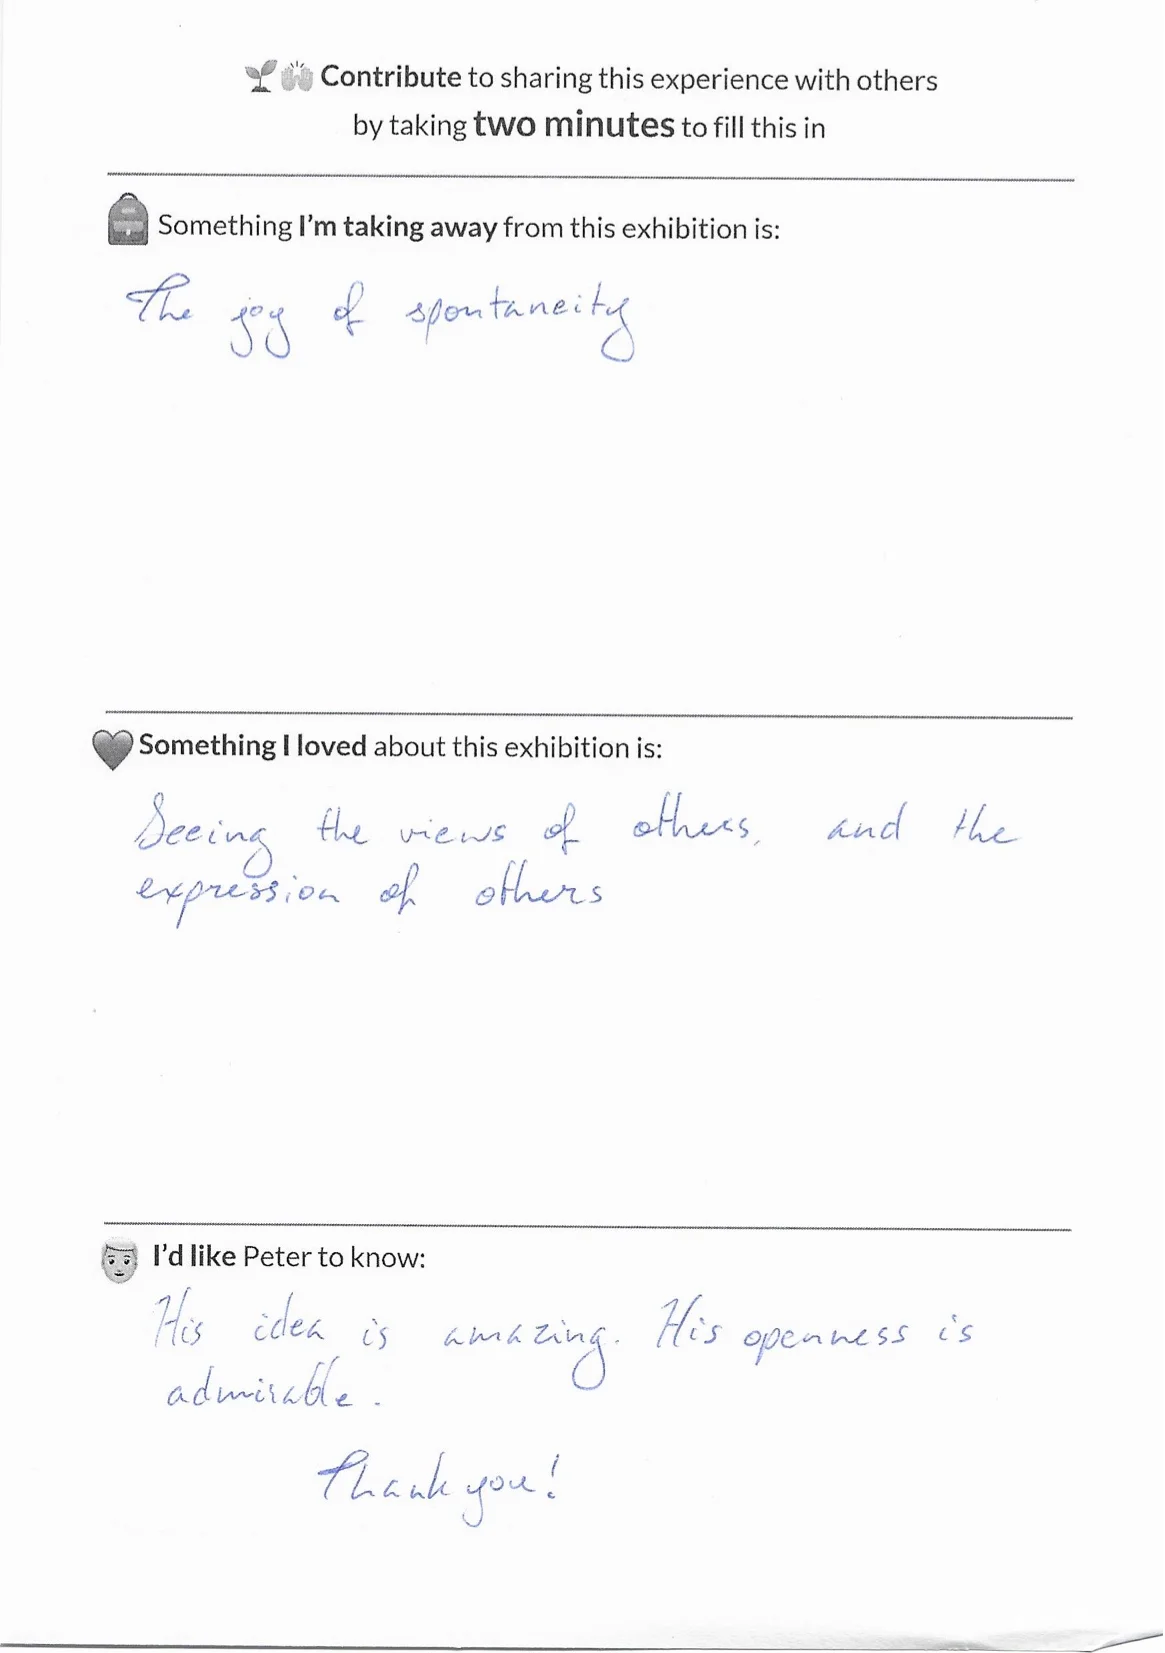 Contribute to sharing this experience with others
by taking two minutes to fill this in
Something I'm taking away from this exhibition is:
The joy of spontaneity
Something I loved about this exhibition is:
Seeing the views of others, and the
expression of others
I'd like Peter to know:
His idea is amazing. His openness is
admirable.
Thank you!